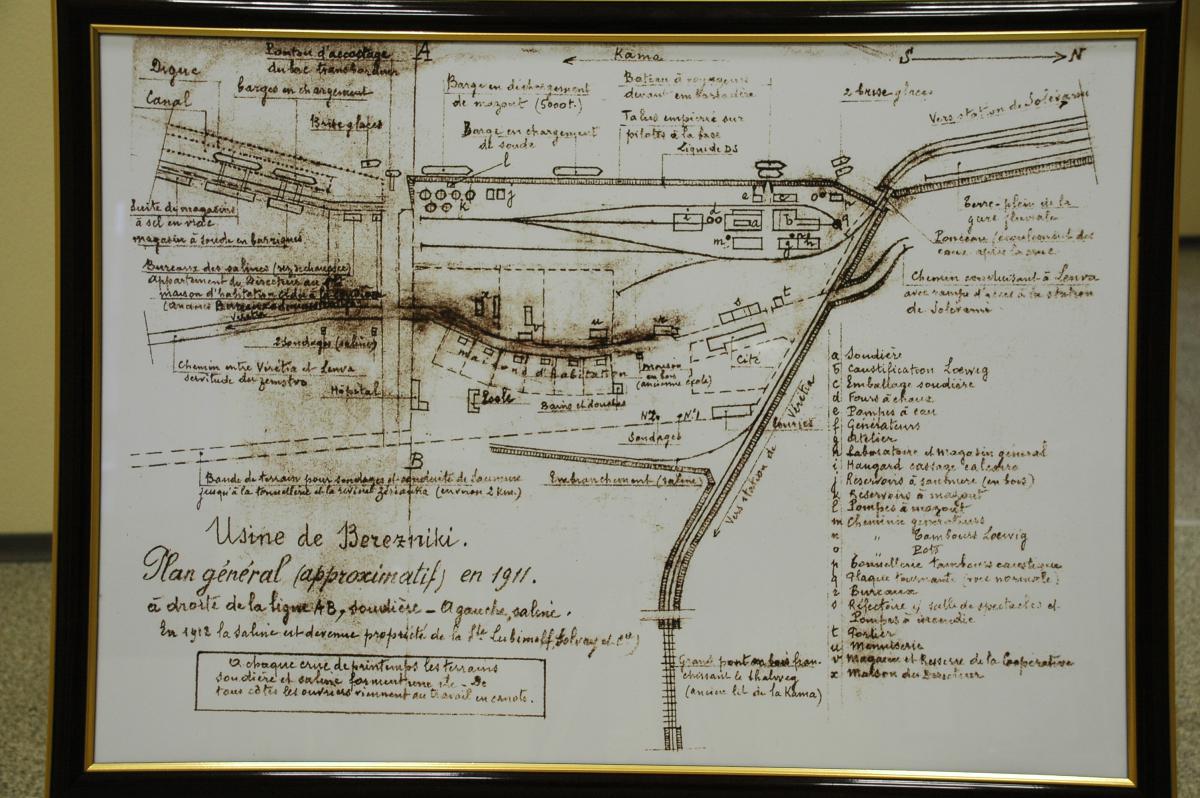 Ponton d'accostage
du bac transbordeur
A
Kama
S
N
Digue
Canal
barges en chargement
Brise glaces
Barge en déchargement
de mazout (5000t.)
Barge en chargement
de soude
Bateau à voyageurs
devant embarcadère
Talus empierré sur
pilotis à la base
Liquide DS
2 brise glaces
Vers station de Solévarni
l
j
k
e
o
i
d
a
b
q
m
g
h
Suite de magasins
à sel en vrac
magasin à soude en barriques
Bureaux des salines (rez de chaussée)
Appartement du Directeur au
maison d'habitation
Vérétia
2 sondages (saline)
Chemin entre Vérétia et Lenva
servitude du zemstvo
Hôpital
Terre-plein de la
gare fluviale
Ponceau (écoulement des
eaux après la crue
Chemin conduisant à Lenva
avec rampe d'accès à la station
de Solévarni
x
v
u
r
s
t
maisons d'habitation
maison
en bois
(ancienne école)
Cité
École
Bains et douches
N°2
N°1
Sondages
écuries
B
Vers station de Vérétia
Bande de terrain pour sondages et conduite de saumure
jusqu'à la tonnellerie et la rivière Ziriantia (environ 2 km.)
Embranchement (saline)
a Soudière
b Caustification Loewig
c Emballage soudière
d Fours à chaux
e Pompes à eau
f Générateurs
g Atelier
h Laboratoire et Magasin général
i Hangard cassage calcaire
j Réservoirs à saumure (en bois)
k Réservoirs à mazout
l Pompes à mazout
m Cheminée générateurs
n " Tambours Loewig
o Bots
p Tonnellerie tambours caustique
q Plaque tournante (voie normale)
r Bureaux
s Réfectoire, salle de spectacles et
Pompes à incendie
t Portier
u Menuiserie
v Magasin et Réserve de la Coopérative
x Maison du Directeur
Usine de Berezniki.
Plan général (approximatif) en 1911.
à droite de la ligne AB, soudière - A gauche, saline.
En 1912 la saline est devenue propriété de la Sté Lubimoff, Solvay et Cie)
A chaque crue de printemps les terrains
soudière et saline forment une île - De
tous côtés les ouvriers viennent au travail en canots.
Grand pont en bois fran-
chissant le thalweg
(ancien lit de la Kama)